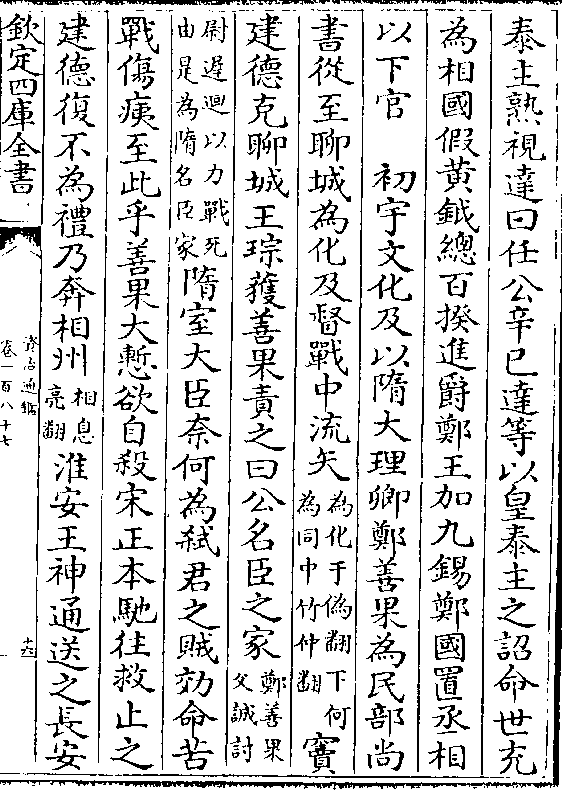 泰主熟視達曰任公辛已達等以皇泰主之詔命世充
為相國假黄鉞總百揆進爵鄭王加九錫鄭國置丞相
以下官　初宇文化及以隋大理卿鄭善果為民部尚
書從至聊城為化及督戰中流矢為化于偽翻下何為同中竹仲翻竇
建德克聊城王琮獲善果責之曰公名臣之家鄭善果父誠討
尉遲迴以力戰死由是為隋名臣家隋室大臣奈何為弑君之賊効命苦
戰傷痍至此乎善果大慙欲自殺宋正本馳往救止之
建德復不為禮乃奔相州相息亮翻淮安王神通送之長安
欽定四庫全書
資治通鑑
卷一百八十七
十六